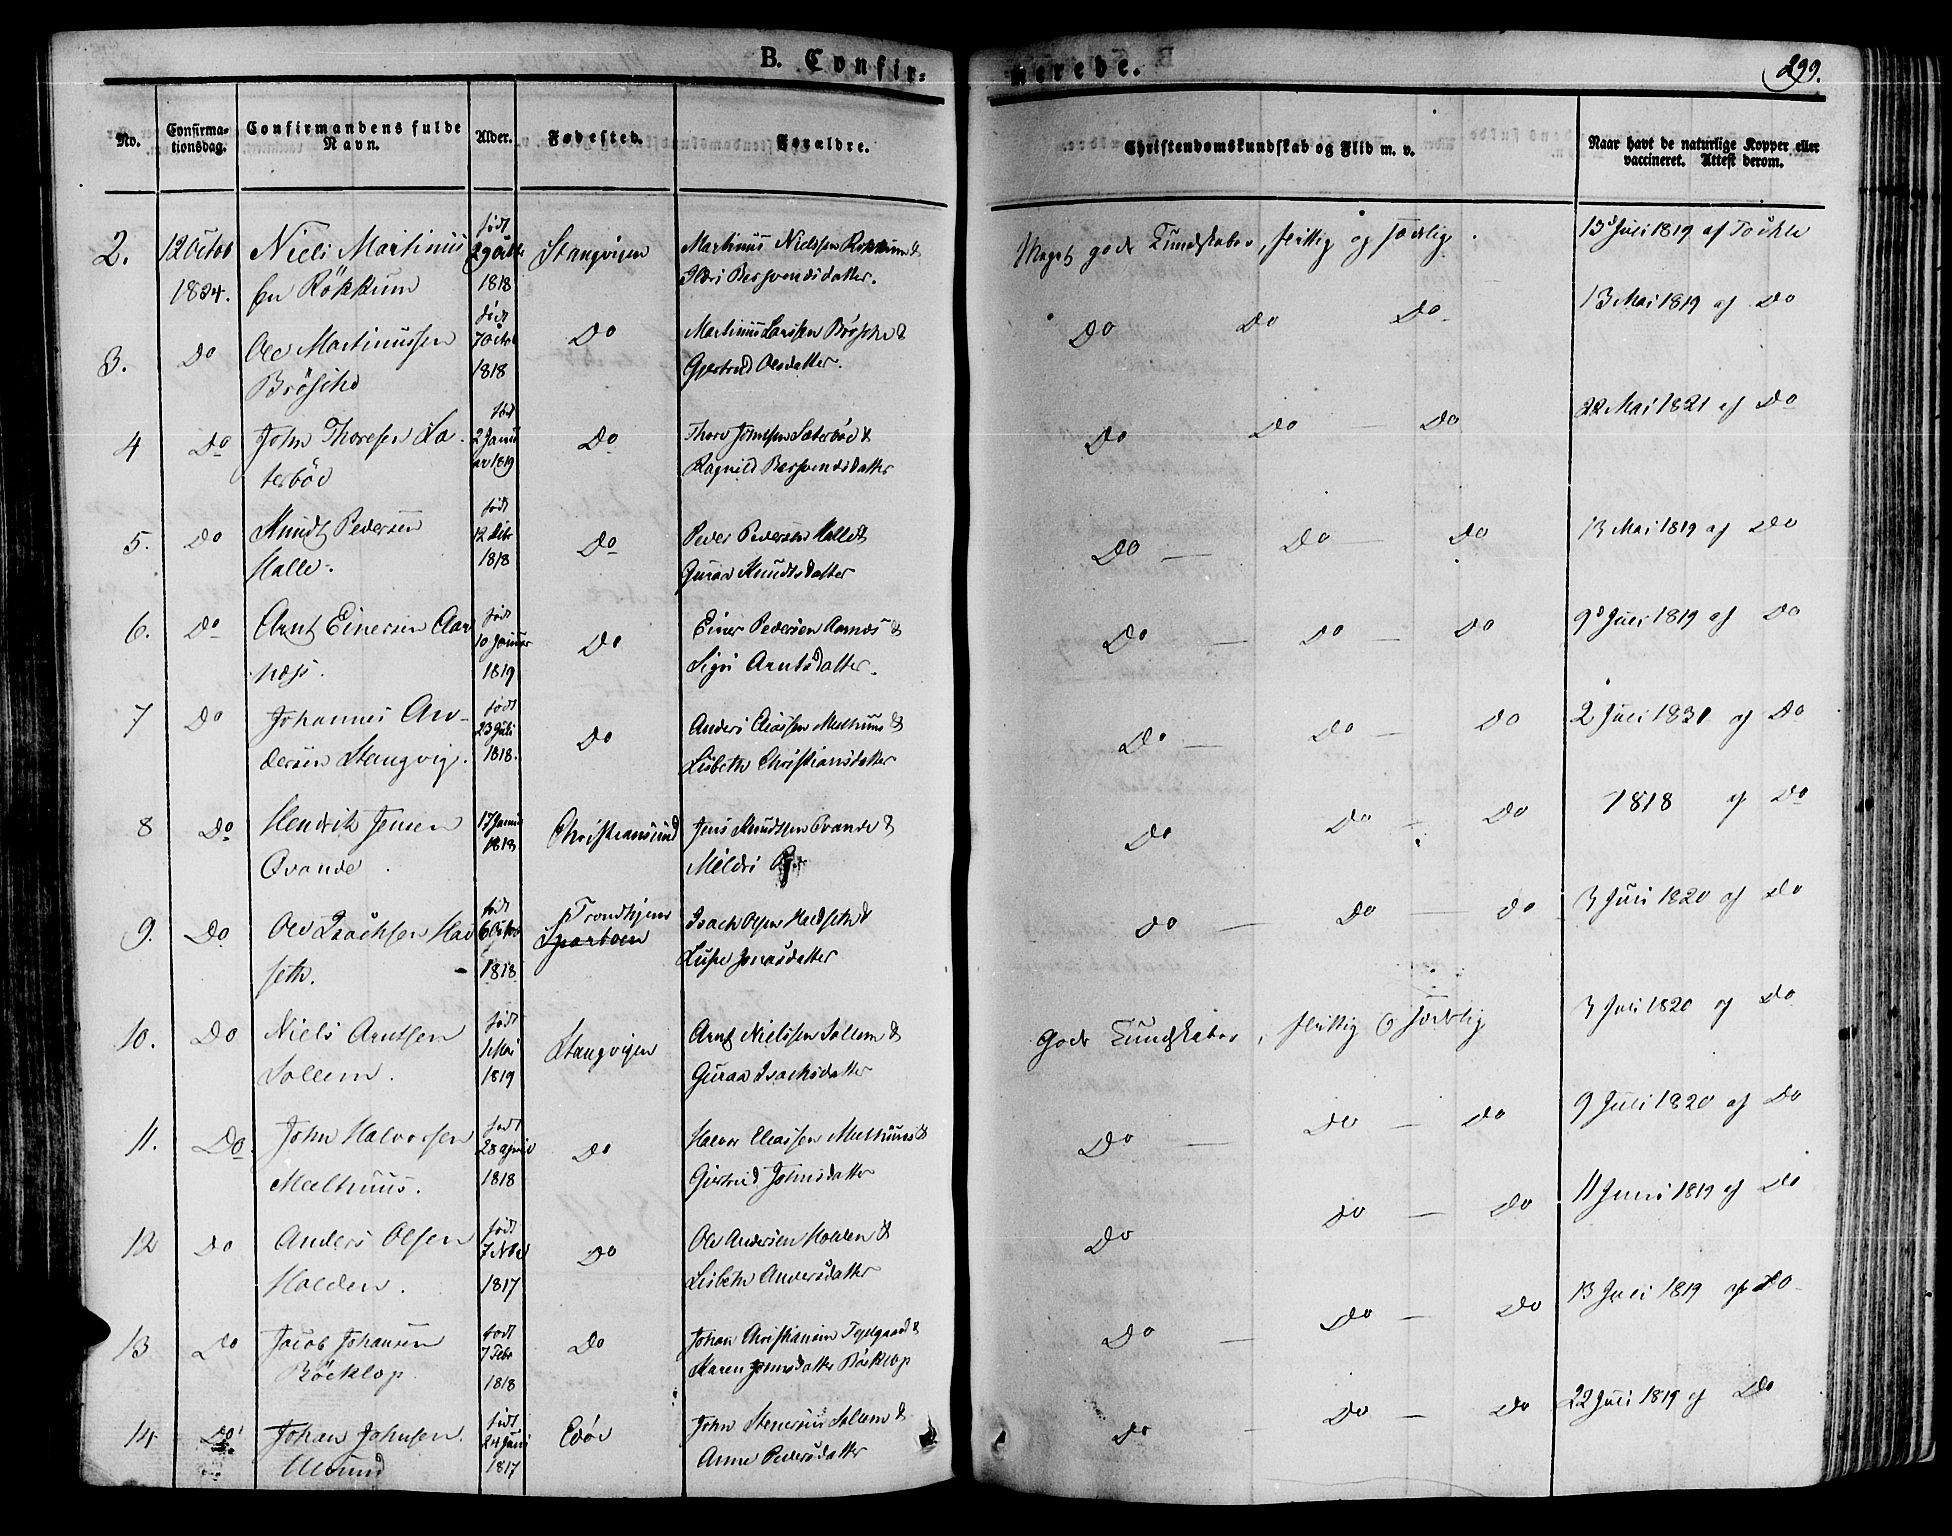 B. Confir-
merede.
299.
No.
Confirma-
tionsdag.
Confirmandens fulde
Navn.
Alder.
Fødested.
Forældre.
Christendomskundskab og Flid m. v.
Naar havt de naturlige Kopper eller
vaccineret. Attest derom.
2. 12 Octob 1834. Niels Martinus
sen Rökkum
født 29 Octbr 1818
Stangvigen
Martinus Nielssen Rökkum &
Ildri Bersvendsdatter.
Meget gode Kundskaber, flittig og sædelig.
13d Juli 1819 af
3. Do Ole Martinussen
Bröske
født 7 Octob 1818
Do
Martinus Larssen Bröske &
Gjertrud Olesdatter.
Do Do Do
13 Mai 1819 af Do
4 Do John Thoresen Sæ-
terböe
født 2 Janu ar 1819
Do
Thore Johnsen Sæterböe &
Ragnild Bersvendsdatter
Do Do — Do
22 Mai 1821 af Do
5. Do Knudt Pedersen
Halle.
født 12 1818
Do
Peder Pedersen Halle &
Guraa Knudtsdatter
Do — Do — Do
13 Mai 1819 af Do
6. Do Arnt Einersen Aar
næss.
født 10 Januar 1819
Do
Einer Pedersen Aarnæs &
Sigri Arntsdatter.
Do — Do — Do
9d Juli 1819 af Do
7 Do Johannes An-
dersen Stangvig.
født 23 Juli 1818.
Do
Anders Eliassen Melhuus &
Lisbeth Christiansdatter
Do — Do — Do
2 Juli 1831 af Do
8 Do Hendrik Jensen
Qvande.
17 Janu 1818
Christiansund
Jens Knudtsen Qvande &
Mildri
Do Do — Do
1818 af Do
9. Do Ole Isachsen
seth.
født 6 1818
Trondhjem
Isach Olsen &
Lusse Jonasdatter
Do — Do — Do
3 Juli 1820 af Do
10. Do Niels Arntsen
Sollem.
født Mai 1819
Stangvigen
Arnt Nielssen Sollem &
Guraa Isachsdatter
Gode Kundskaber, flittig og sædelig
3 Juli 1820 af Do
11. Do. John Halvorsen
Melhuus.
født 28 April 1818
Do
Halvor Eliassen Melhuus &
Gjertrud Johnsdatter
Do — Do — Do
9 Juli 1820 af Do
12 Do Anders Olsen
Holden.
født 7 Nov 1817
Do
Ole Andersen Holden &
Lisbeth Andersdatter
Do Do — Do
11 Juni 1819 af Do
13 Do Jacob Johansen
Böeklop
født 7 Febr 1818
Do
Johan Christiansen &
Karen Johnsdatter Böeklop
Do — Do — Do
13 Juli 1819 af Do
14 Do Johan Johnsen
født 24 Juni 1817
Edöe
John Stenersen Sollem &
Anne Pedersdatter
Do Do — Do
22 Juli 1819 af Do